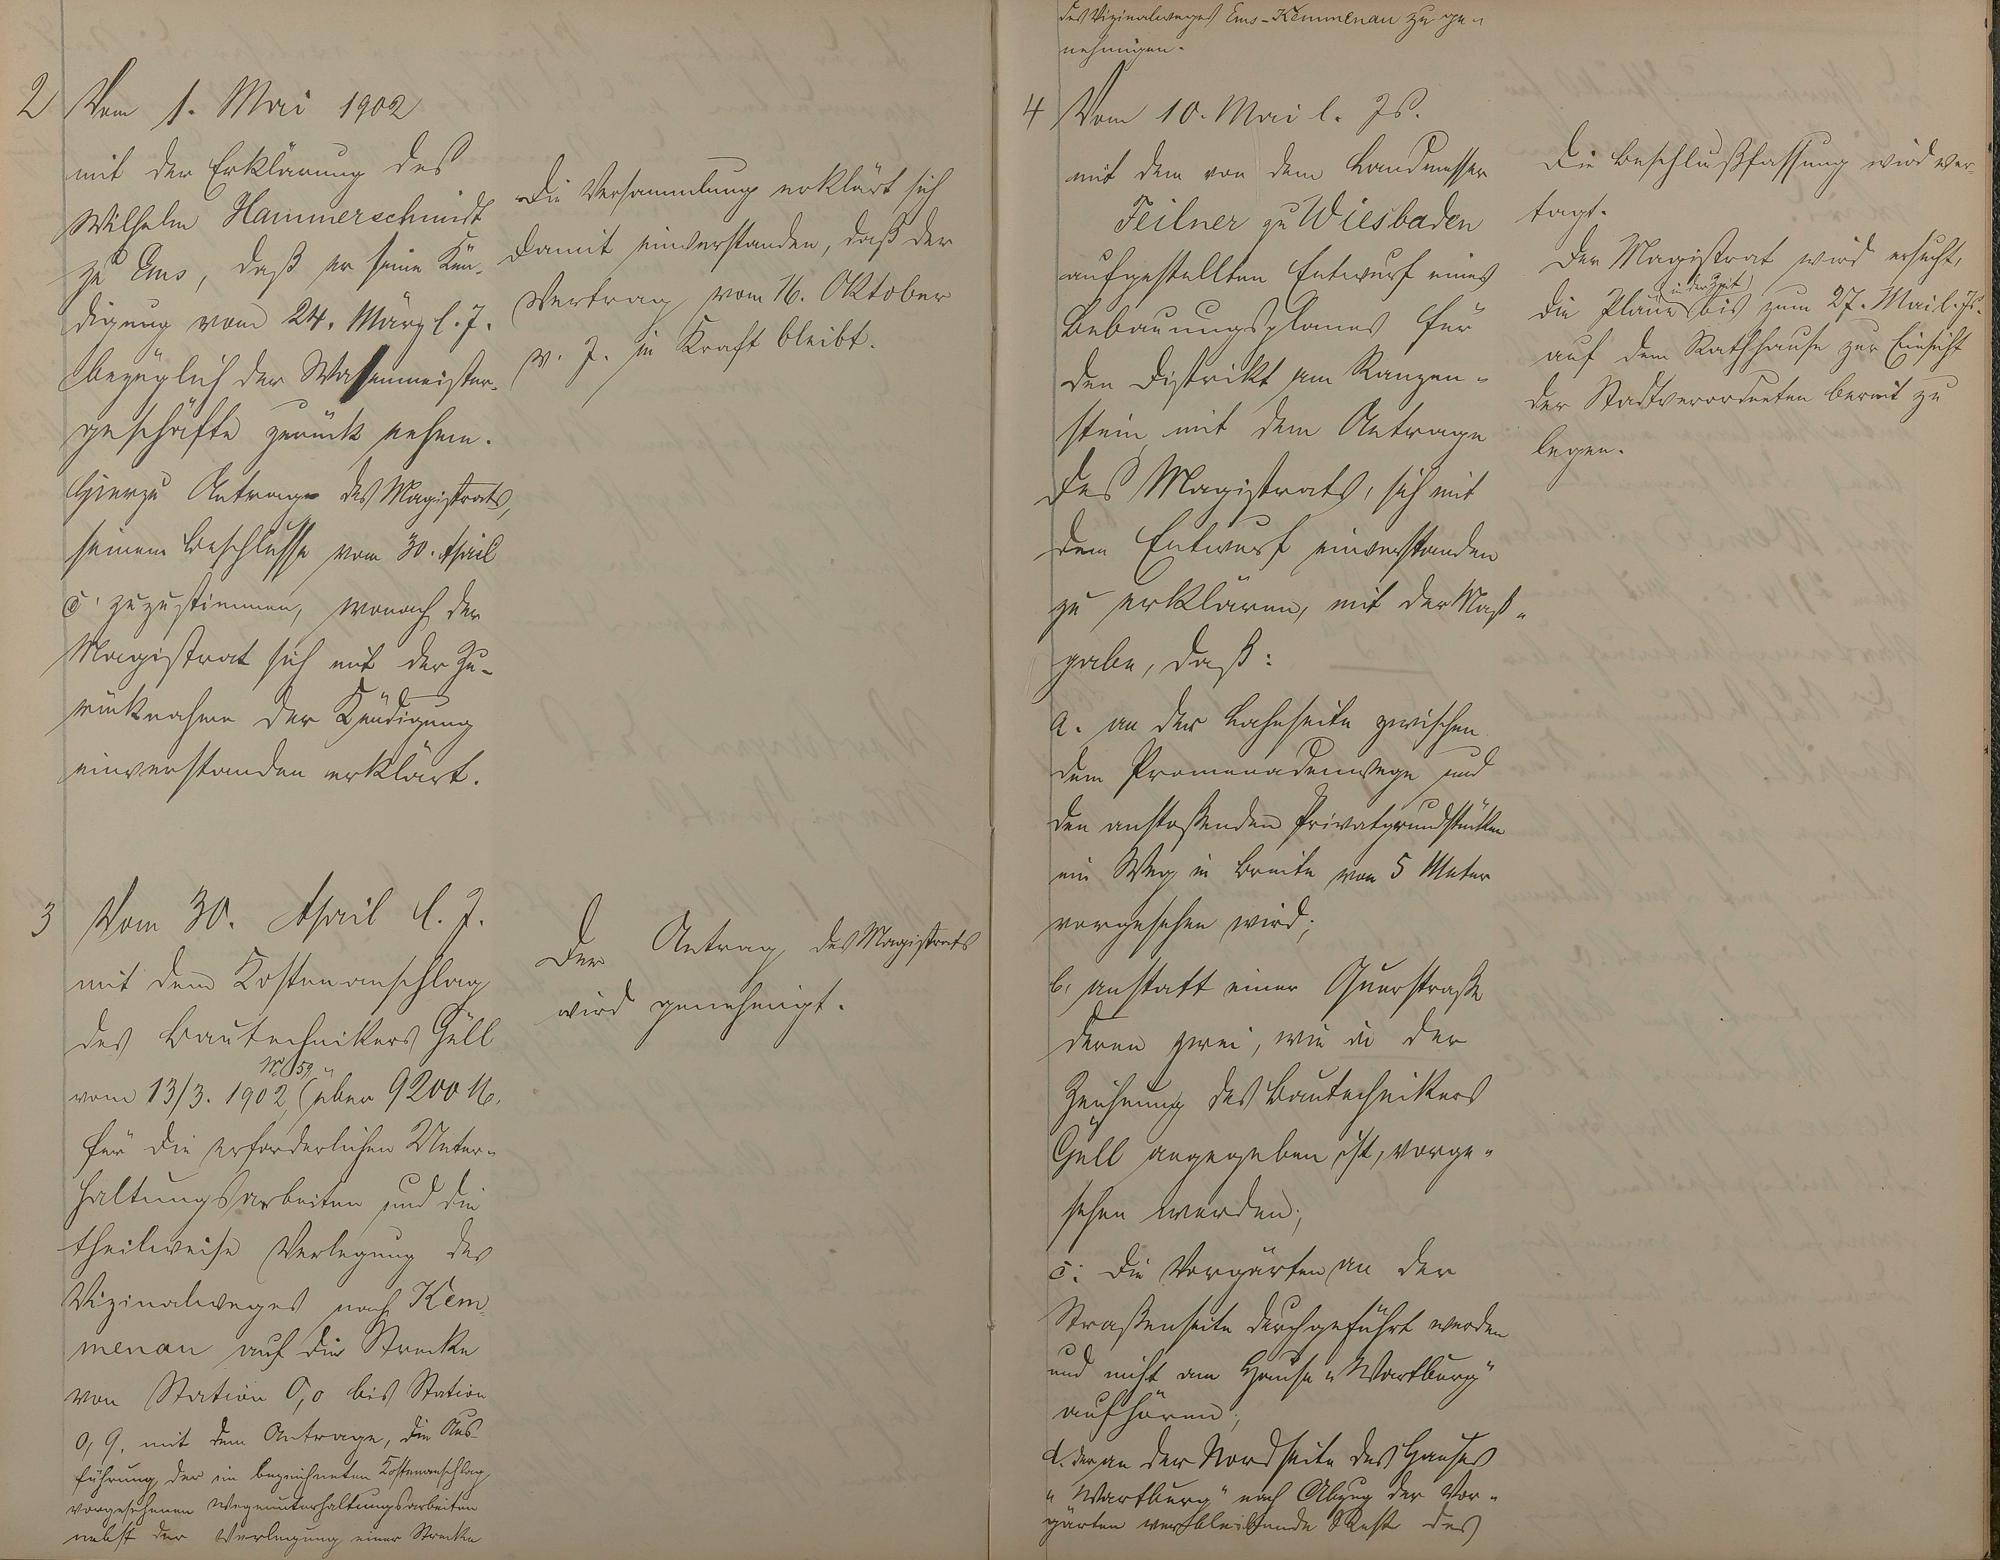 2 Vom 1. Mai 1902
mit der Erklärung des
Wilhelm Hammerschmidt
zu Ems, daß er seine Kün-
digung vom 24. März l. J.
bezüglich der Wasenmeister-
geschäfte zurück nehme.
Hierzu Antrag des Magistrats,
seinem Beschlusse vom 30. April
c. zuzustimmen, wonach der
Magistrat sich mit der Zu-
rücknahme der Kündigung
einverstanden erklärt.
Die Versammlung erklärt sich
damit einverstanden, daß der
Vertrag vom 16. Oktober
v. J. in Kraft bleibt.
3 Vom 30. April l. J.
mit dem Kostenanschlag
des Bautechnikers Güll
No 59
vom 13/3. 1902 (über 9200 M.
für die erforderlichen Unter-
haltungsarbeiten und die
theilweise Verlegung des
Vizinalweges nach Kem-
menau auf die Strecke
von Station 0,0 bis Station
0,9, mit dem Antrage, die Aus-
führung der im bezeichneten Kostenanschlag
vorgesehenen Wegeunterhaltungsarbeiten
nebst der Verlegung einer Strecke
Der Antrag des Magistrats
wird genehmigt.
des Vizinalweges Ems-Kemmenau zu ge-
nehmigen.
4 Vom 10. Mai l. Js.
mit dem von dem Landmesser
Feilner zu Wiesbaden
aufgestellten Entwurf eines
Bebauungsplanes für
den Distrikt am Ranzen-
stein mit dem Antrage
des Magistrats, sich mit
dem Entwurf einverstanden
zu erklären, mit der Maß-
gabe, daß:
a. an der Lahnseite zwischen
dem Promenadenwege und
den anstoßenden Privatgrundstücken
ein Weg in Breite von 5 Meter
vorgesehen wird;
b. anstatt einer Querstraße
deren zwei, wie in der
Zeichnung des Bautechnikers
Güll angegeben ist, vorge-
sehen werden;
c. die Vorgärten an der
Straßenseite durchgeführt werden
und nicht am Hause "Wartburg"
aufhören;
d. der an der Nordseite des Hauses
"Wartburg" nach Abzug der Vor-
gärten verbleibende Rest des
Die Beschlußfassung wird ver-
tagt.
Der Magistrat wird ersucht,
in der Zeit
die Pläne bis zum 27. Mai l. Js.
auf dem Rathhause zur Einsicht
der Stadtverordneten bereit zu
legen.